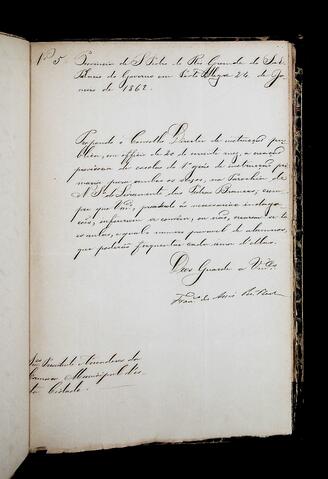 Nº 5. Provincia de S. Pedro do Rio Grande do Sul
Palacio do Governo em Porto Alegre 24 de Ja-
neiro de 1862.
Propondo o Conselho Director de instrucção pu-
blica, em officio de 20 do corrente mez, a creação
provisoria de escolas do 1º gráo de instrucção pri-
maria para ambos os sexos, na Parochia de
N. S. do Livramento das Pedras Brancas, cum-
pre que Vmces, procedendo ás necessarias indaga-
ções, informem se convém, ou não, crearem-se ta-
es aulas, e qual o numero provavel de alumnos,
que poderão frequentar cada uma d'ellas.
Deos Guarde a Vmces
Snres Presidente Vereadores da
Camara Municipal d'es-
ta Cidade.